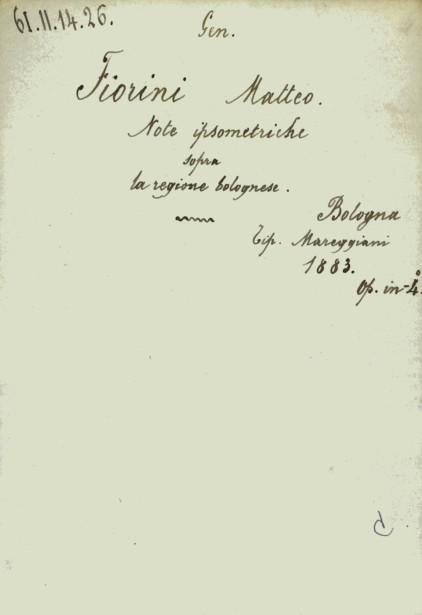 61.II.14.26.
Gen.
Fiorini Matteo.
Note ipsometriche
sopra
la regione bolognese.
Bologna
Tip. Mareggiani
1883.
Op. in-4°.